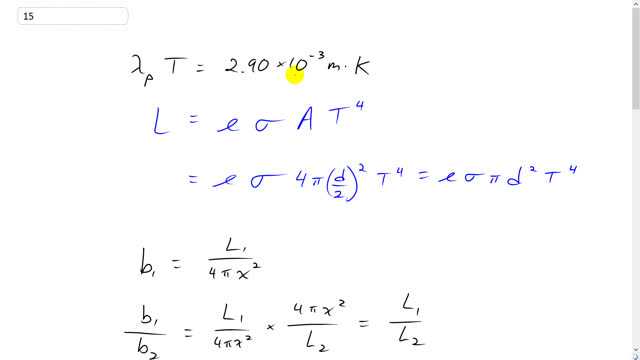 15
λₚ T = 2.90 × 10⁻³ m · K
L = e σ A T⁴
= e σ 4π(d/2)² T⁴ = e σ π d² T⁴
b₁ = L₁/4πx²
b₁/b₂ = L₁/4πx² × 4πx²/L₂ = L₁/L₂